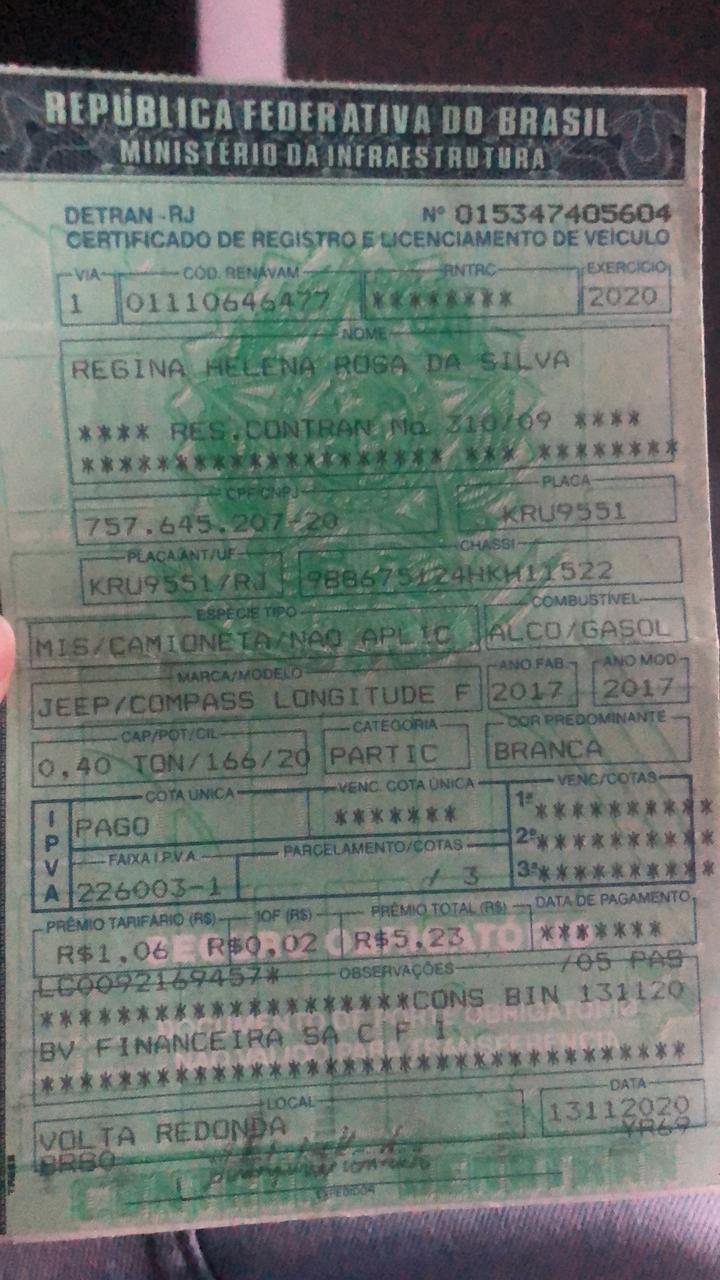 REPÚBLICA FEDERATIVA DO BRASIL
MINISTÉRIO DA INFRAESTRUTURA
DETRAN - RJ Nº 015347405604
CERTIFICADO DE REGISTRO E LICENCIAMENTO DE VEÍCULO
VIA CÓD. RENAVAM RNTRC EXERCÍCIO
1 01110646477 ******** 2020
NOME
REGINA HELENA ROSA DA SILVA
**** RES.CONTRAN No 310/09 ****
******************** *** ********
CPF/CNPJ PLACA
757.645.207-20 KRU9551
PLACA ANT/UF CHASSI
KRU9551/RJ 988675124HKH11522
ESPÉCIE TIPO COMBUSTÍVEL
MIS/CAMIONETA/NAO APLIC ALCO/GASOL
MARCA/MODELO ANO FAB. ANO MOD.
JEEP/COMPASS LONGITUDE F 2017 2017
CAP/POT/CIL CATEGORIA COR PREDOMINANTE
0,40 TON/166/20 PARTIC BRANCA
IPVA
COTA ÚNICA VENC. COTA ÚNICA VENC/COTAS
PAGO ******* 1ª **********
2ª **********
FAIXA I.P.V.A. PARCELAMENTO/COTAS 3ª **********
226003-1 / 3
PRÊMIO TARIFÁRIO (R$) IOF (R$) PRÊMIO TOTAL (R$) DATA DE PAGAMENTO
R$1,06 R$0,02 R$5,23 *******
SEGURO OBRIGATÓRIO
LC0092169457* OBSERVAÇÕES /05 PAS
********************CONS BIN 131120
BV FINANCEIRA SA C F I
***********************************
LOCAL DATA
VOLTA REDONDA 13112020
BRBO YR69
EXPEDIDOR